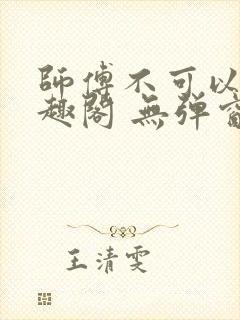 師傅不可以
趣閣 無弹
王清雯